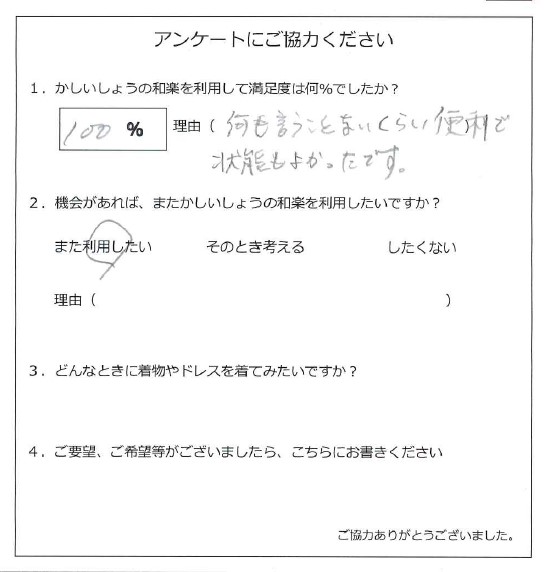 アンケートにご協力ください
1．かしいしょうの和楽を利用して満足度は何％でしたか？
100 ％ 理由（ 何も言うことないくらい便利で
状態もよかったです。
2．機会があれば、またかしいしょうの和楽を利用したいですか？
また利用したい そのとき考える したくない
理由（ ）
3．どんなときに着物やドレスを着てみたいですか？
4．ご要望、ご希望等がございましたら、こちらにお書きください
ご協力ありがとうございました。